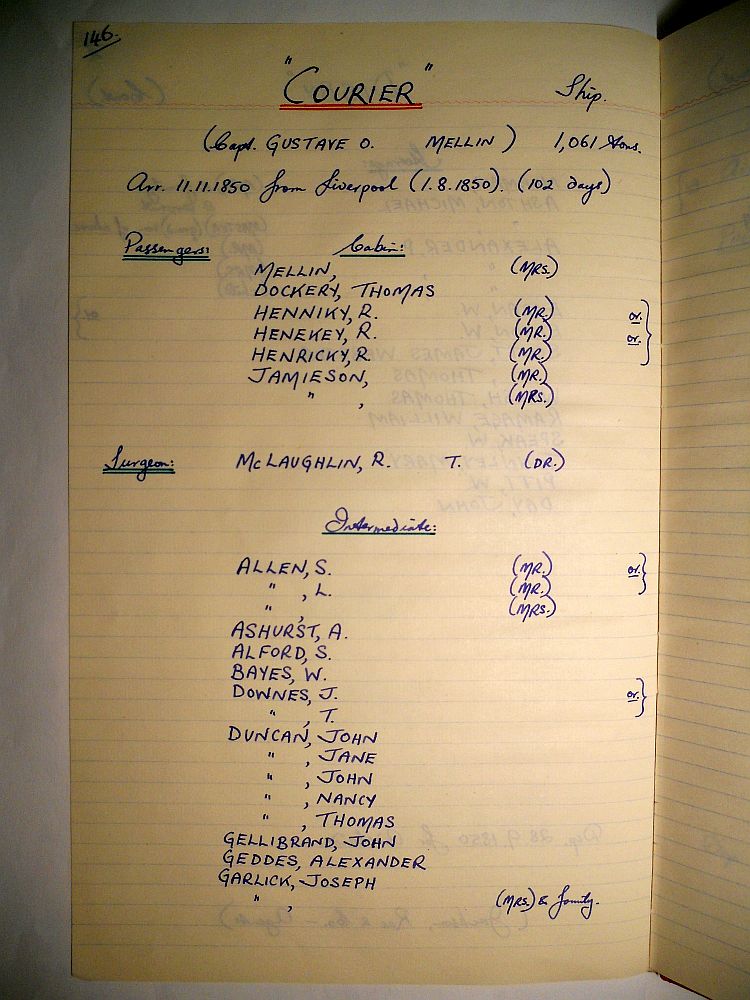 146.
"COURIER" Ship.
(Capt. GUSTAVE O. MELLIN) 1,061 tons.
Arr. 11.11.1850 from Liverpool (1.8.1850). (102 days)
Passengers: Cabin:
MELLIN, (MRS.)
DOCKERY, THOMAS
HENNIKY, R. (MR.) or. }
HENEKEY, R. (MR.) or.
HENRICKY, R (MR.)
JAMIESON, (MR.)
" , (MRS.)
Surgeon: McLAUGHLIN, R. T. (DR.)
Intermediate:
ALLEN, S. (MR.) or. }
" , L. (MR.)
" , (MRS.)
ASHURST, A.
ALFORD, S.
BAYES, W.
DOWNES, J. or. }
" , T.
DUNCAN, JOHN
" , JANE
" , JOHN
" , NANCY
" , THOMAS
GELLIBRAND, JOHN
GEDDES, ALEXANDER
GARLICK, JOSEPH
" , (MRS.) & family.